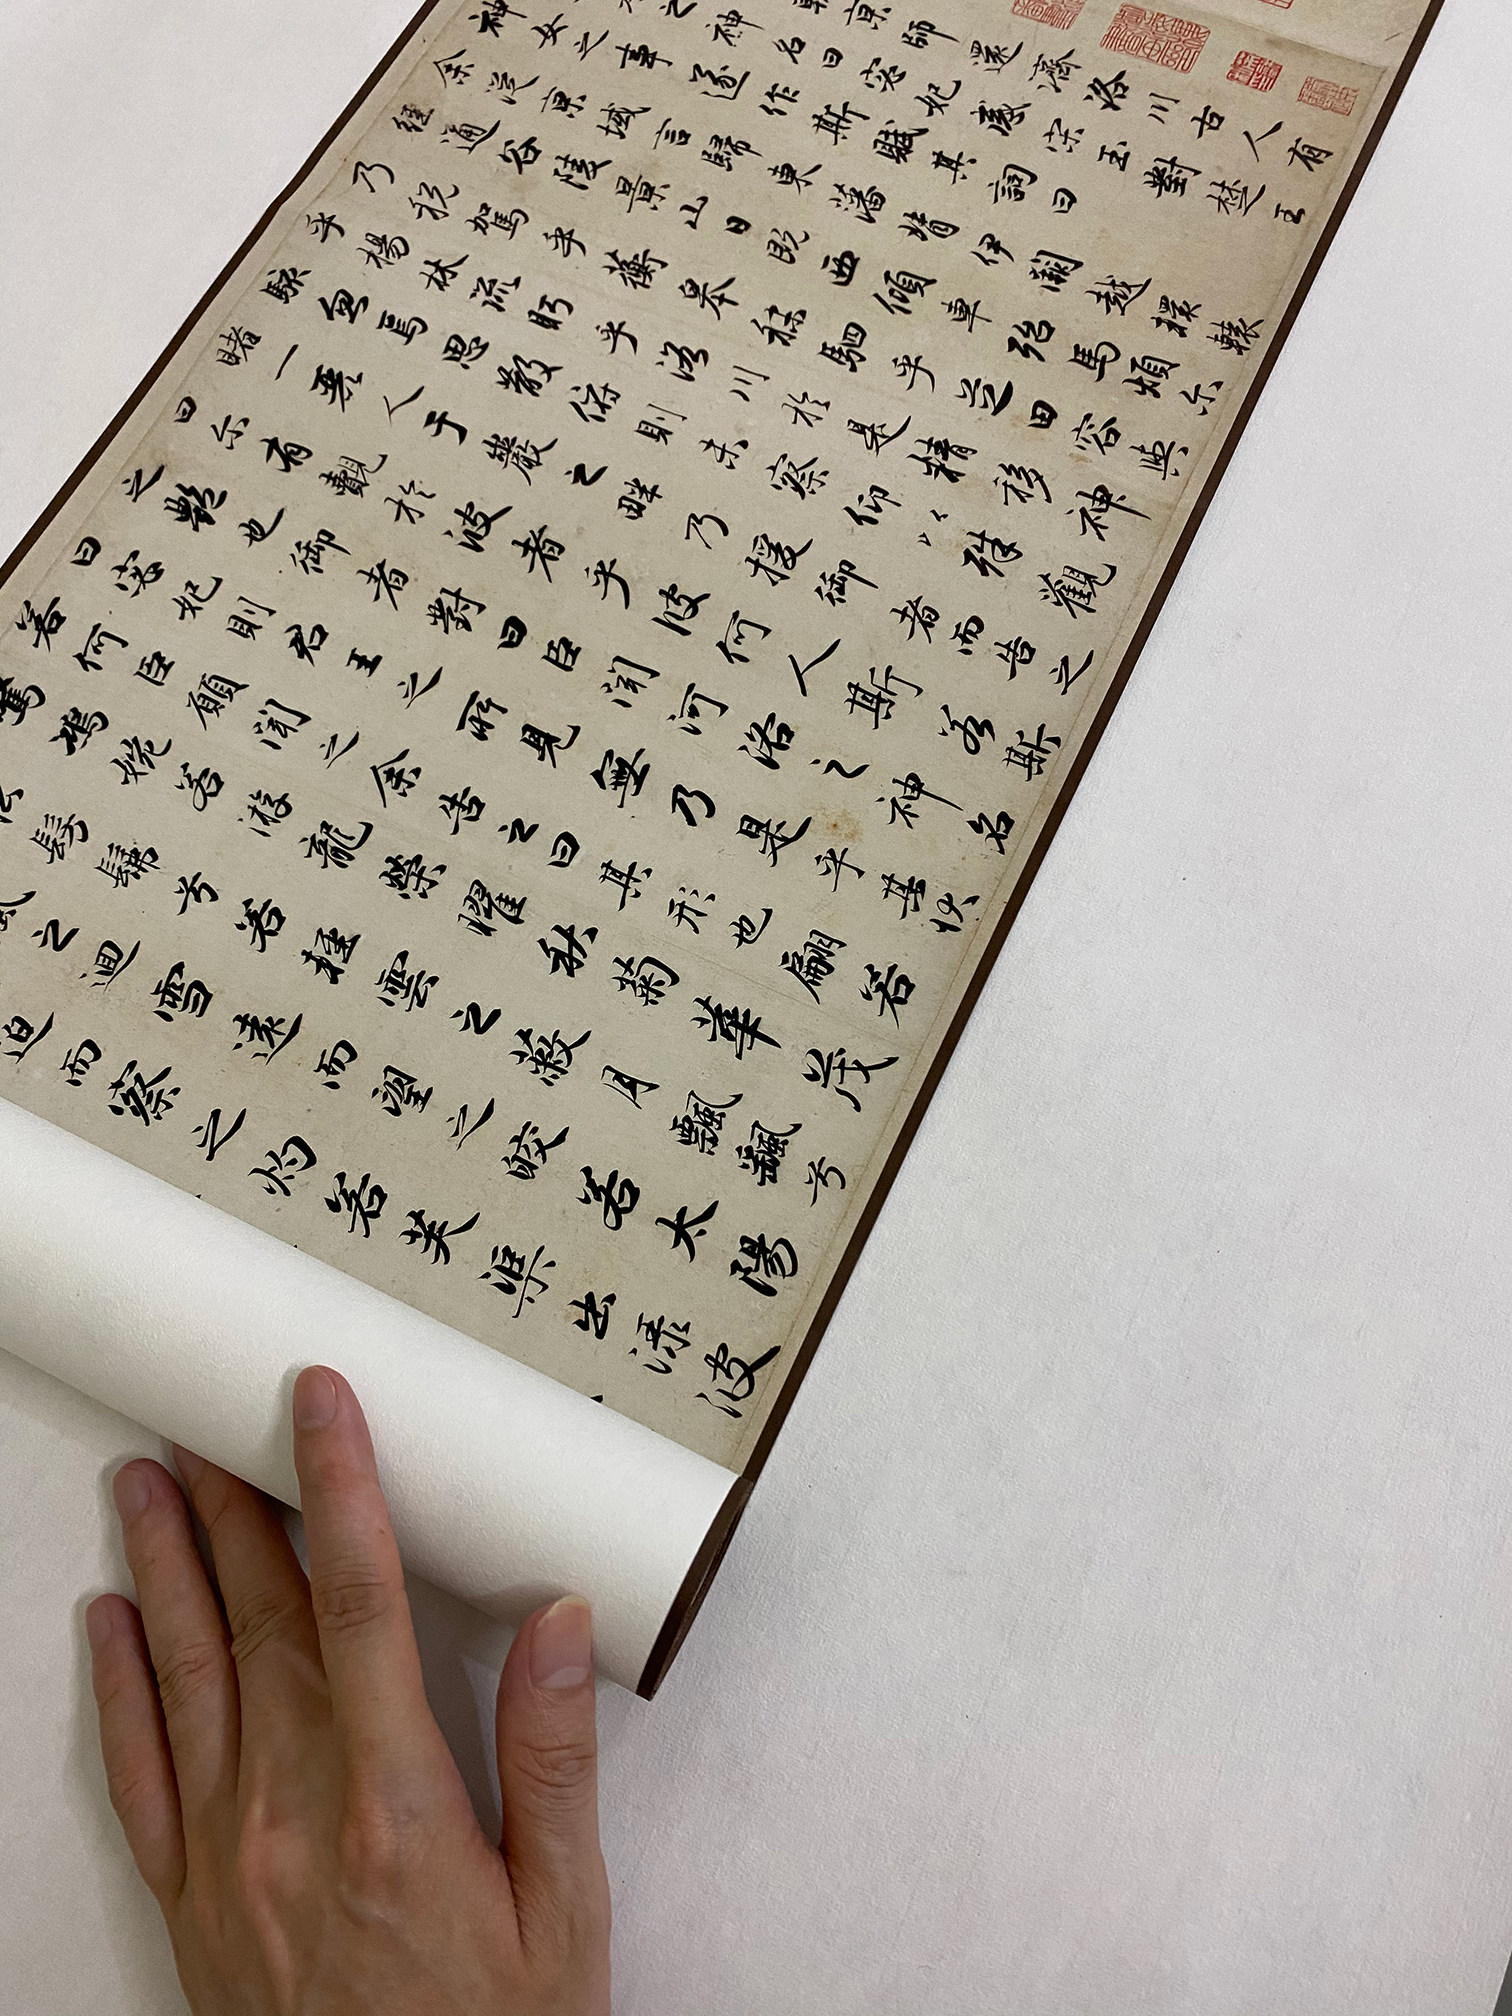 京師還濟洛川古人有
之神名曰宓妃感宋玉對楚王
神女之事遂作斯賦其詞曰
余從京域言歸東藩背伊闕越轘轅
經通谷陵景山日既西傾車殆馬煩尓
乃税駕乎蘅皋秣駟乎芝田容與
乎楊林流眄乎洛川於是精移神
駭忽焉思散俯則未察仰以殊觀
睹一麗人于巖之畔乃援御者而告之
曰尓有覿於彼者乎彼何人斯若斯
之艷也御者對曰臣聞河洛之神名
曰宓妃則君王之所見無乃是乎其狀
若何臣願聞之余告之曰其形也翩若
驚鴻婉若游龍榮曜秋菊華茂
髣髴兮若輕雲之蔽月飄颻兮
風之迴雪遠而望之皎若太陽
迫而察之灼若芙蕖出淥波